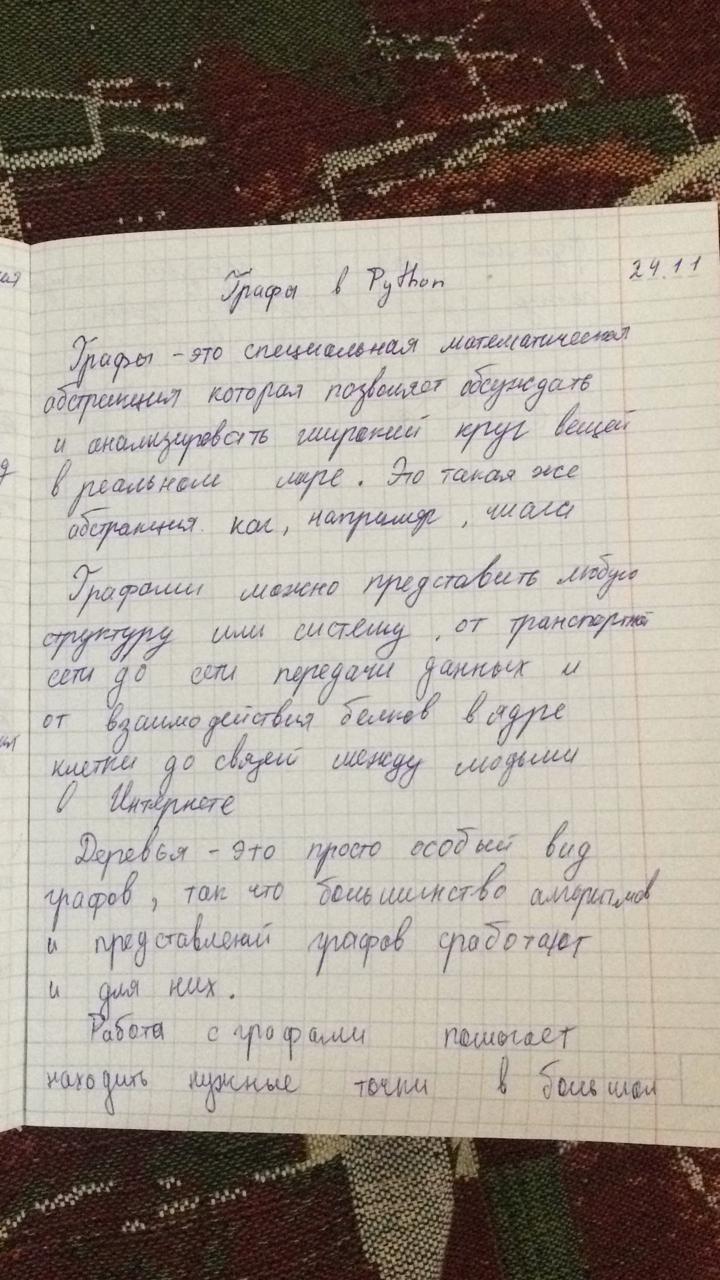 24.11
Графы в Python
Графы - это специальная математическая
абстракция которая позволяет обсуждать
и анализировать широкий круг вещей
в реальном мире. Это такая же
абстракция как, например, числа
Графами можно представить любую
структуру или систему, от транспортной
сети до сети передачи данных и
от взаимодействия белков в ядре
клетки до связей между людьми
в Интернете
Деревья - это просто особый вид
графов, так что большинство алгоритмов
и представлений графов сработают
и для них.
Работа с графами помогает
находить нужные точки в большом